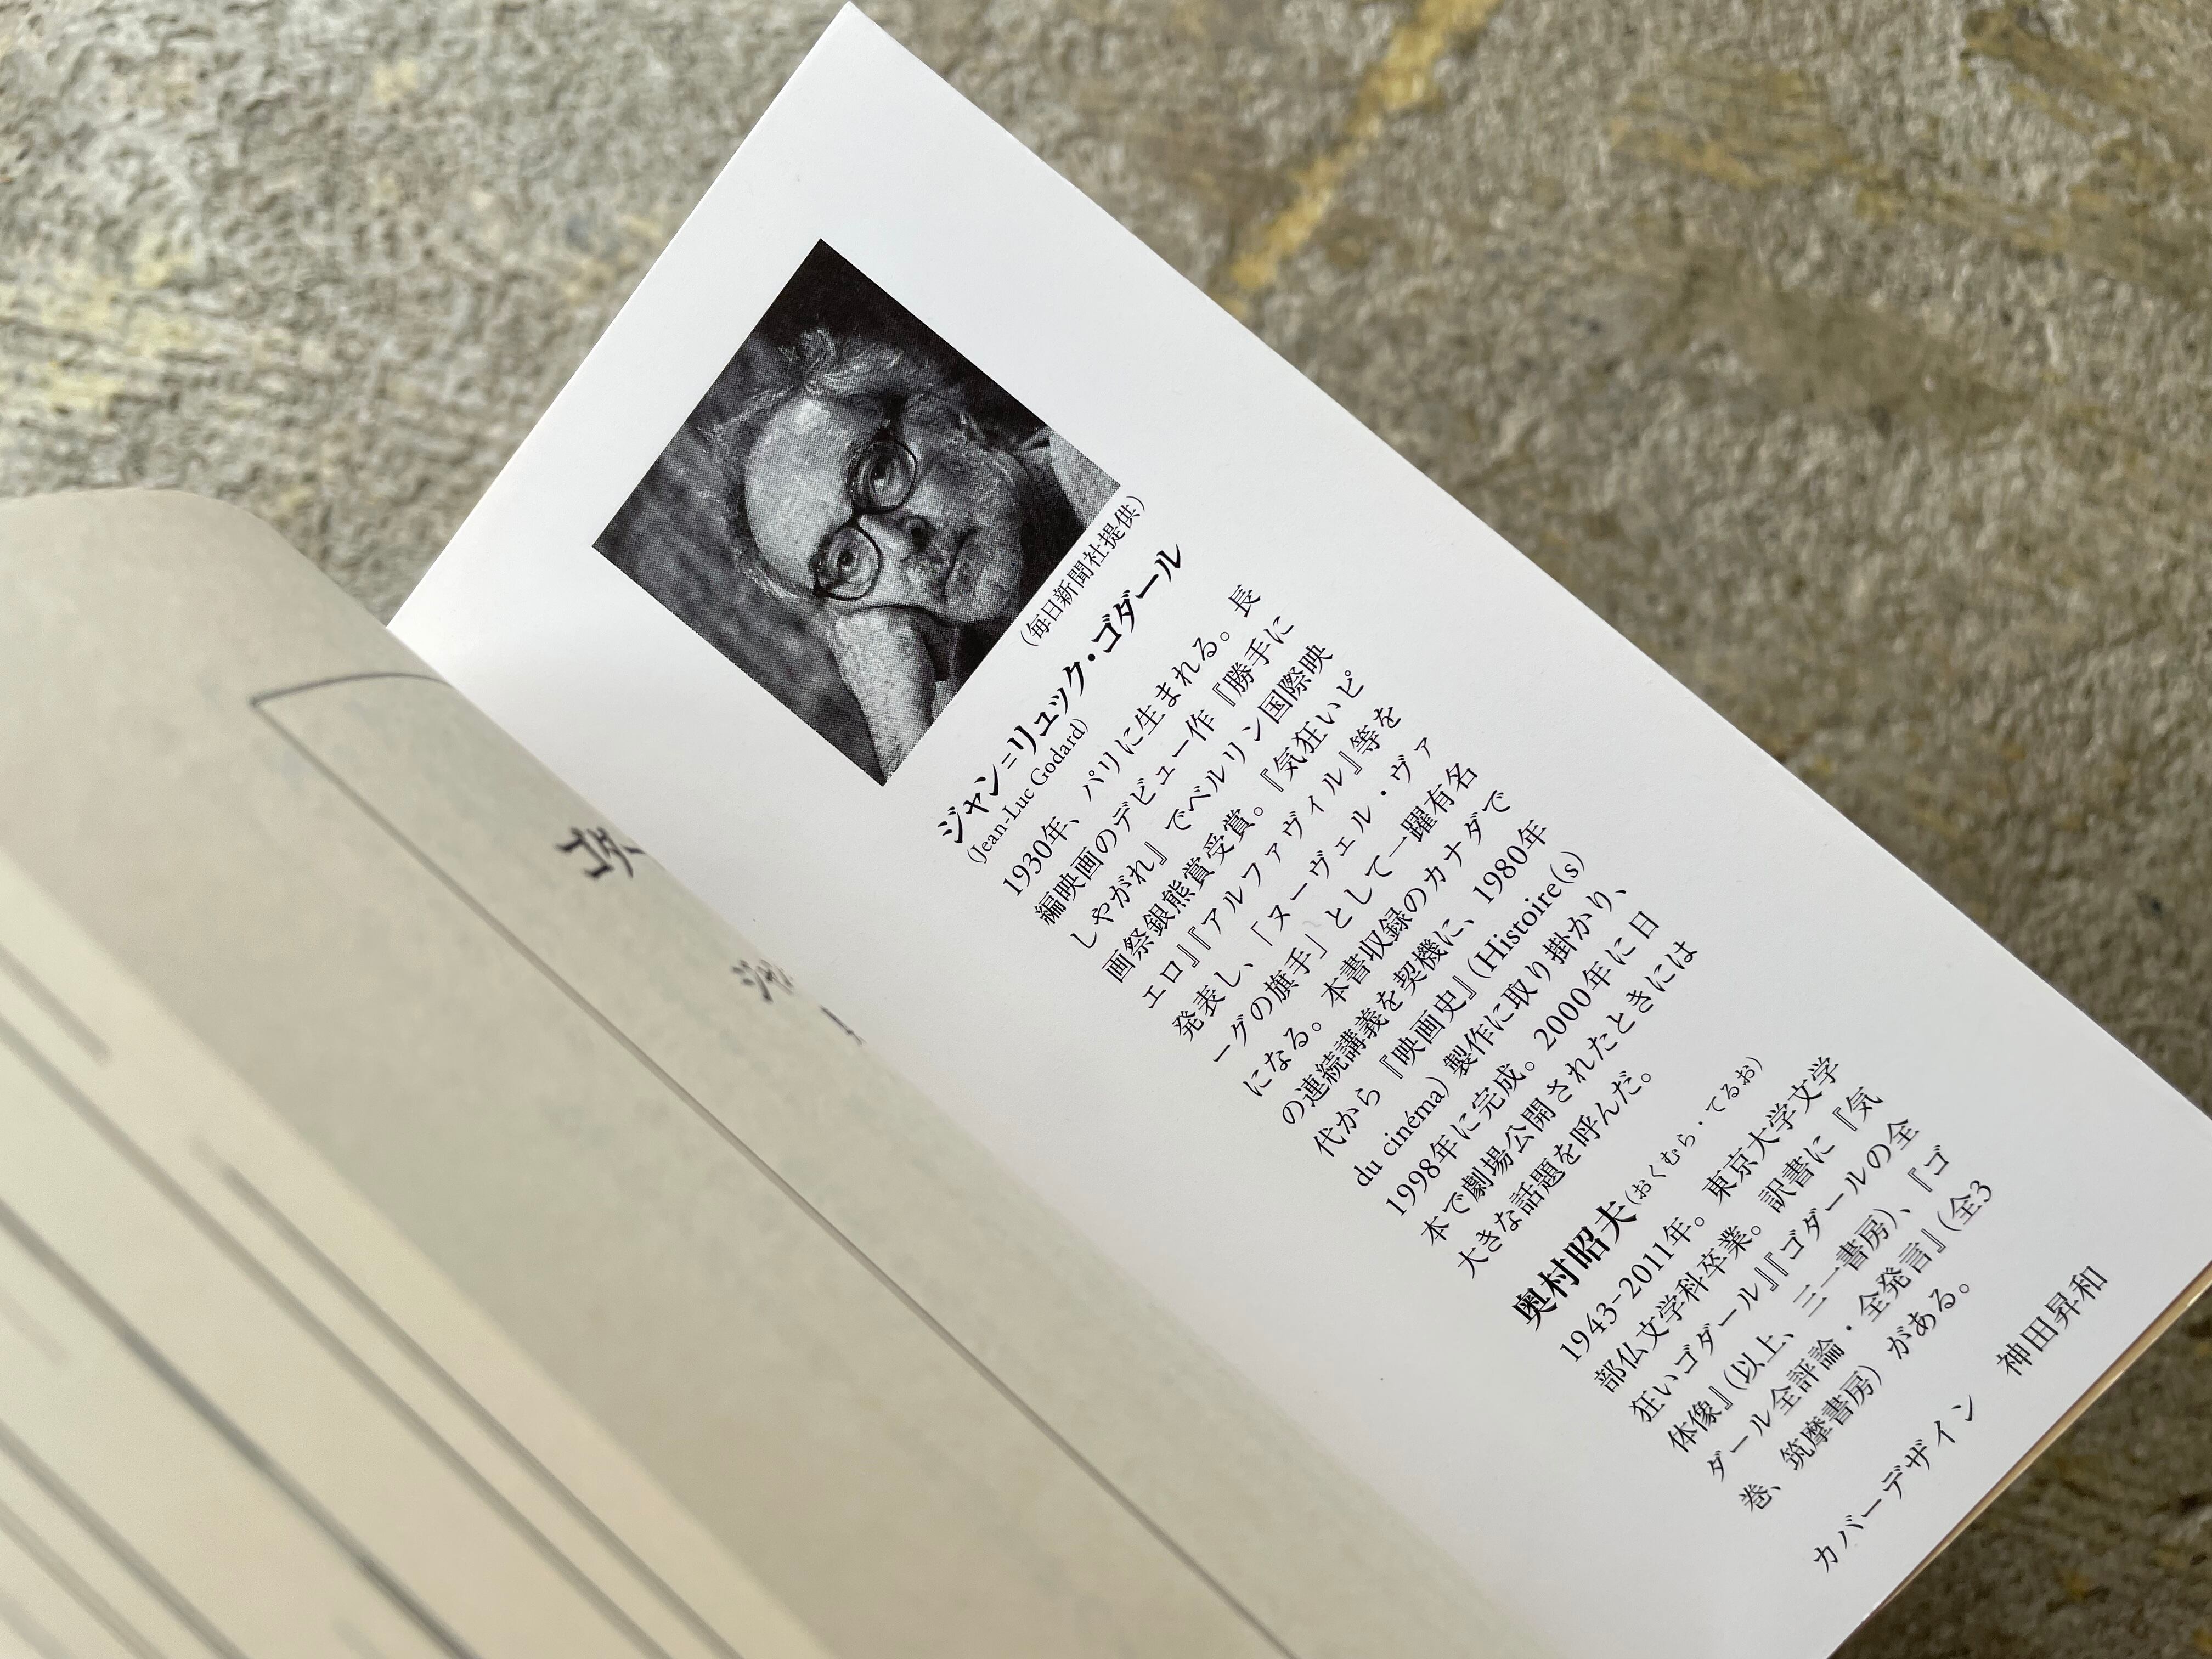 （毎日新聞社提供）
ジャン=リュック・ゴダール
(Jean-Luc Godard)
1930年、パリに生まれる。長
編映画のデビュー作『勝手に
しやがれ』でベルリン国際映
画祭銀熊賞受賞。『気狂いピ
エロ』『アルファヴィル』等を
発表し、「ヌーヴェル・ヴァ
ーグの旗手」として一躍有名
になる。本書収録のカナダで
の連続講義を契機に、1980年
代から『映画史』(Histoire(s)
du cinéma) 製作に取り掛かり、
1998年に完成。2000年に日
本で劇場公開されたときには
大きな話題を呼んだ。
奥村昭夫（おくむら・てるお）
1943-2011年。東京大学文学
部仏文学科卒業。訳書に『気
狂いゴダール』『ゴダールの全
体像』（以上、三一書房）、『ゴ
ダール全評論・全発言』（全3
巻、筑摩書房）がある。
カバーデザイン　神田昇和
ゴダ
ジャ